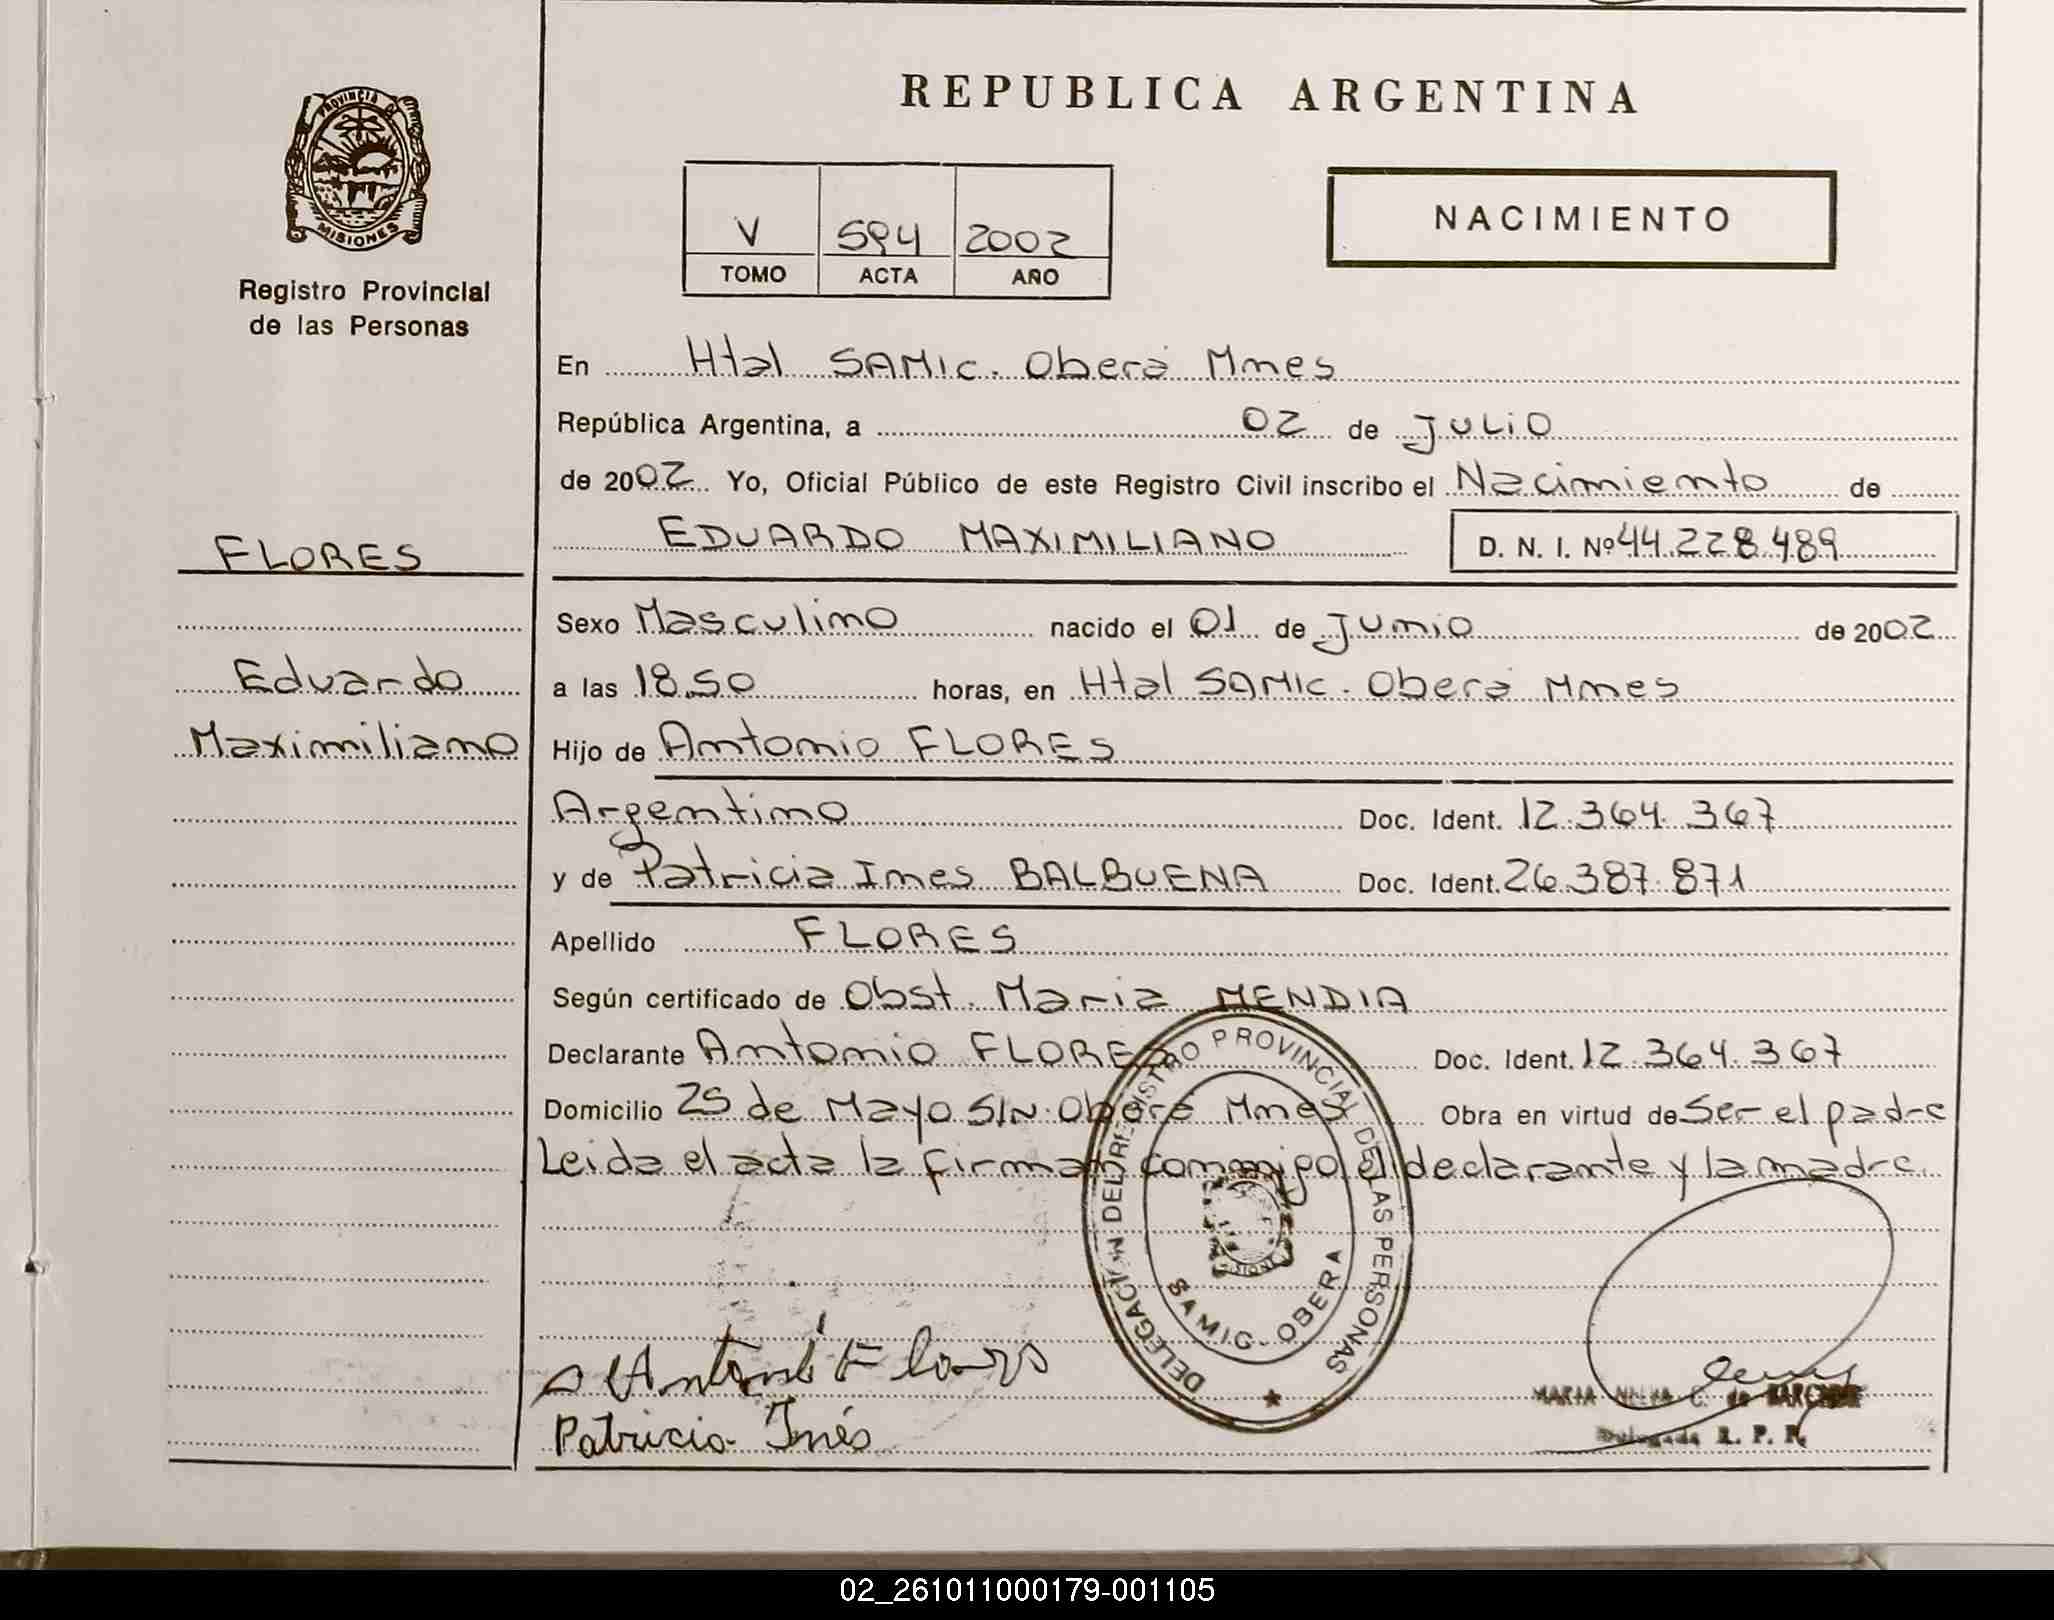 REPUBLICA ARGENTINA
PROVINCIA DE
MISIONES
Registro Provincial
de las Personas
V 594 2002
TOMO ACTA AÑO
NACIMIENTO
En Htal SAMIC. Oberá Mnes
República Argentina, a 02 de Julio
de 2002 Yo, Oficial Público de este Registro Civil inscribo el Nacimiento de
EDUARDO MAXIMILIANO D. N. I. Nº 44.228.489
FLORES
Eduardo
Maximiliano
Sexo Masculino nacido el 01 de Junio de 2002
a las 18.50 horas, en Htal SAMIC. Oberá Mnes
Hijo de Antonio FLORES
Argentino Doc. Ident. 12.364.367
y de Patricia Ines BALBUENA Doc. Ident. 26.387.871
Apellido FLORES
Según certificado de Obst. Maria MENDIA
Declarante Antonio FLORES Doc. Ident. 12.364.367
Domicilio 25 de Mayo S/N. Oberá Mnes Obra en virtud de Ser el padre
Leida el acta la firman conmigo el declarante y la madre.
DELEGACION DEL REGISTRO PROVINCIAL DE LAS PERSONAS
SAMIC - OBERA
Antonio Flores
Patricia Inés
MARIA C. de
Delegada R. P. P.
02_261011000179-001105